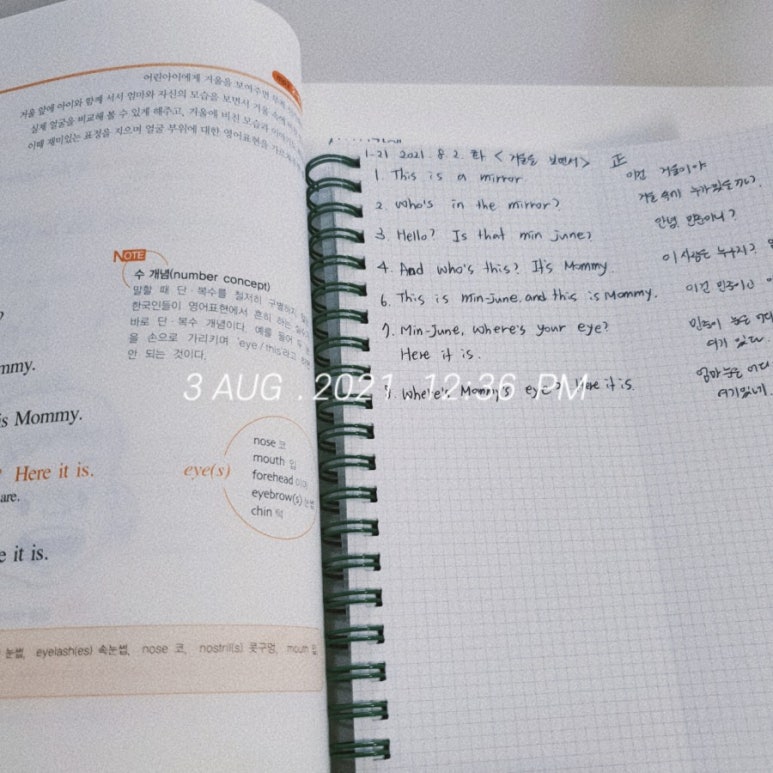 어린아이에게 거울을 보여주면
거울 앞에 아이와 함께 서서 엄마와 자신의 모습을 보면서 거울 속에
실제 얼굴을 비교해 볼 수 있게 해주고, 거울에 비친 모습과
이때 재미있는 표정을 지으며 얼굴 부위에 대한 영어표현을
NOTE
수 개념(number concept)
말할 때 단·복수를 철저히
한국인들이 영어표현에서 흔히 하는
바로 단·복수 개념이다. 예를 들어 두
을 손으로 가리키며 'eye / this'라고
안 되는 것이다.
mmy.
is Mommy.
Here it is.
are.
e it is.
eye(s)
nose 코
mouth 입
forehead 이마
eyebrow(s) 눈썹
chin 턱
눈썹, eyelash(es) 속눈썹, nose 코, nostril(s) 콧구멍, mouth 입
1-21 2021. 8. 2. 화 <거울을 보면서> 正
1. This is a mirror.
2. Who's in the mirror?
3. Hello? Is that min june?
4. And who's this? It's Mommy.
6. This is min-june. and this is Mommy.
7. Min-June, where's your eye?
Here it is.
9. Where's Mommy's eye? Here it is.
이건 거울이야
거울 속에 누가 있을까?
안녕 민준이니?
이 사람은 누구지?
이건 민준이고
민준이 눈은 어디
여기 있다.
엄마 눈은 어디
여기있네
3 AUG . 2021 12:36 PM